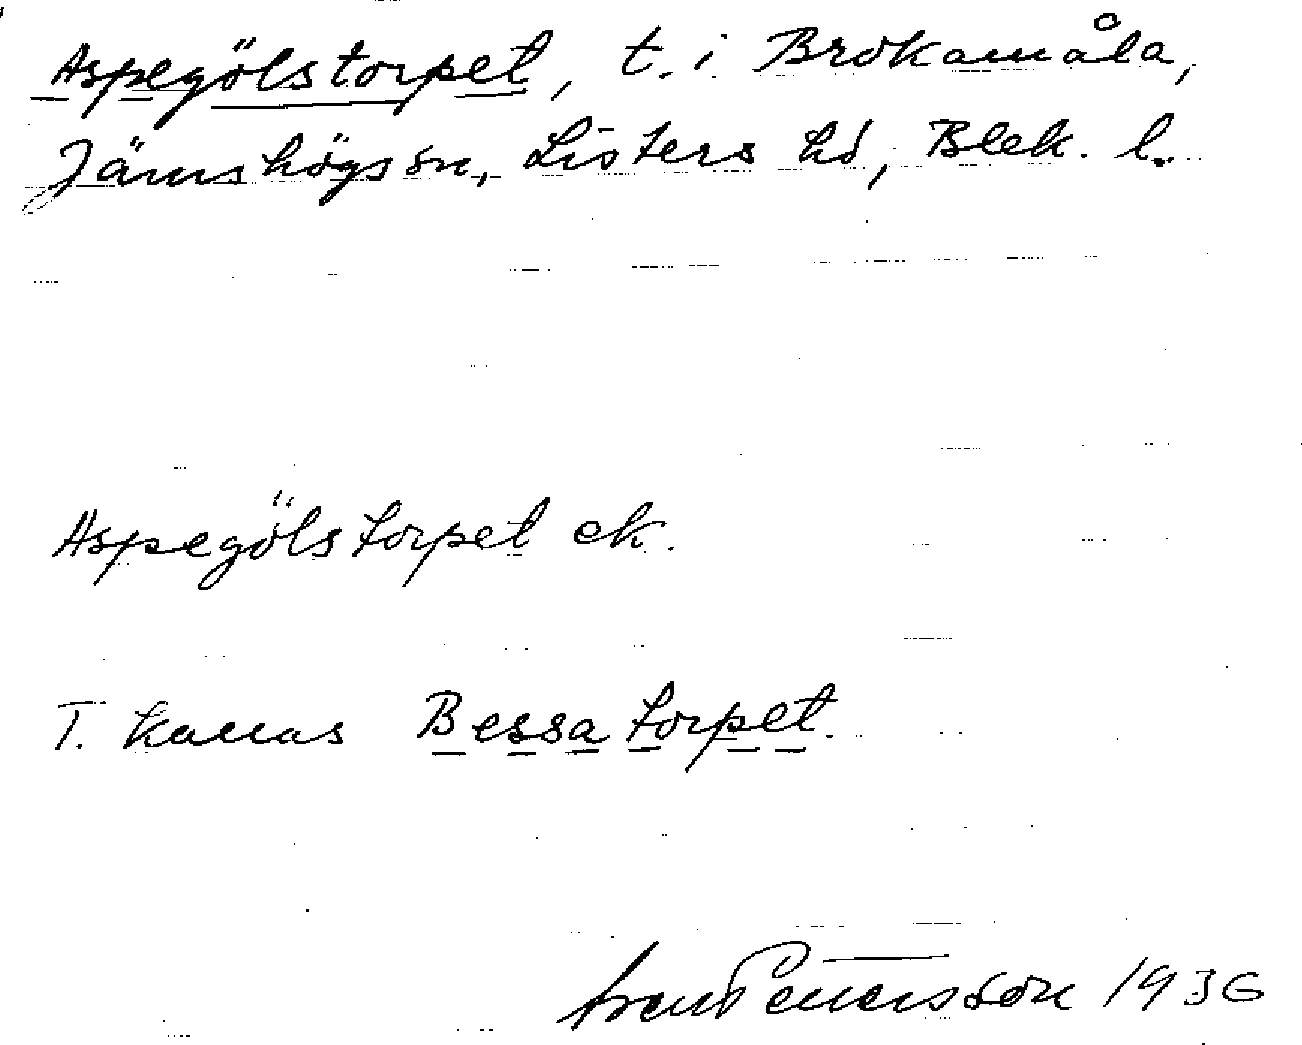 Aspegölstorpet, t. i Brokamåla,
Jämshögs sn, Listers hd, Blek. l.
Aspegölstorpet ek.
T. kallas Bessatorpet.
Sven Pettersson 1936